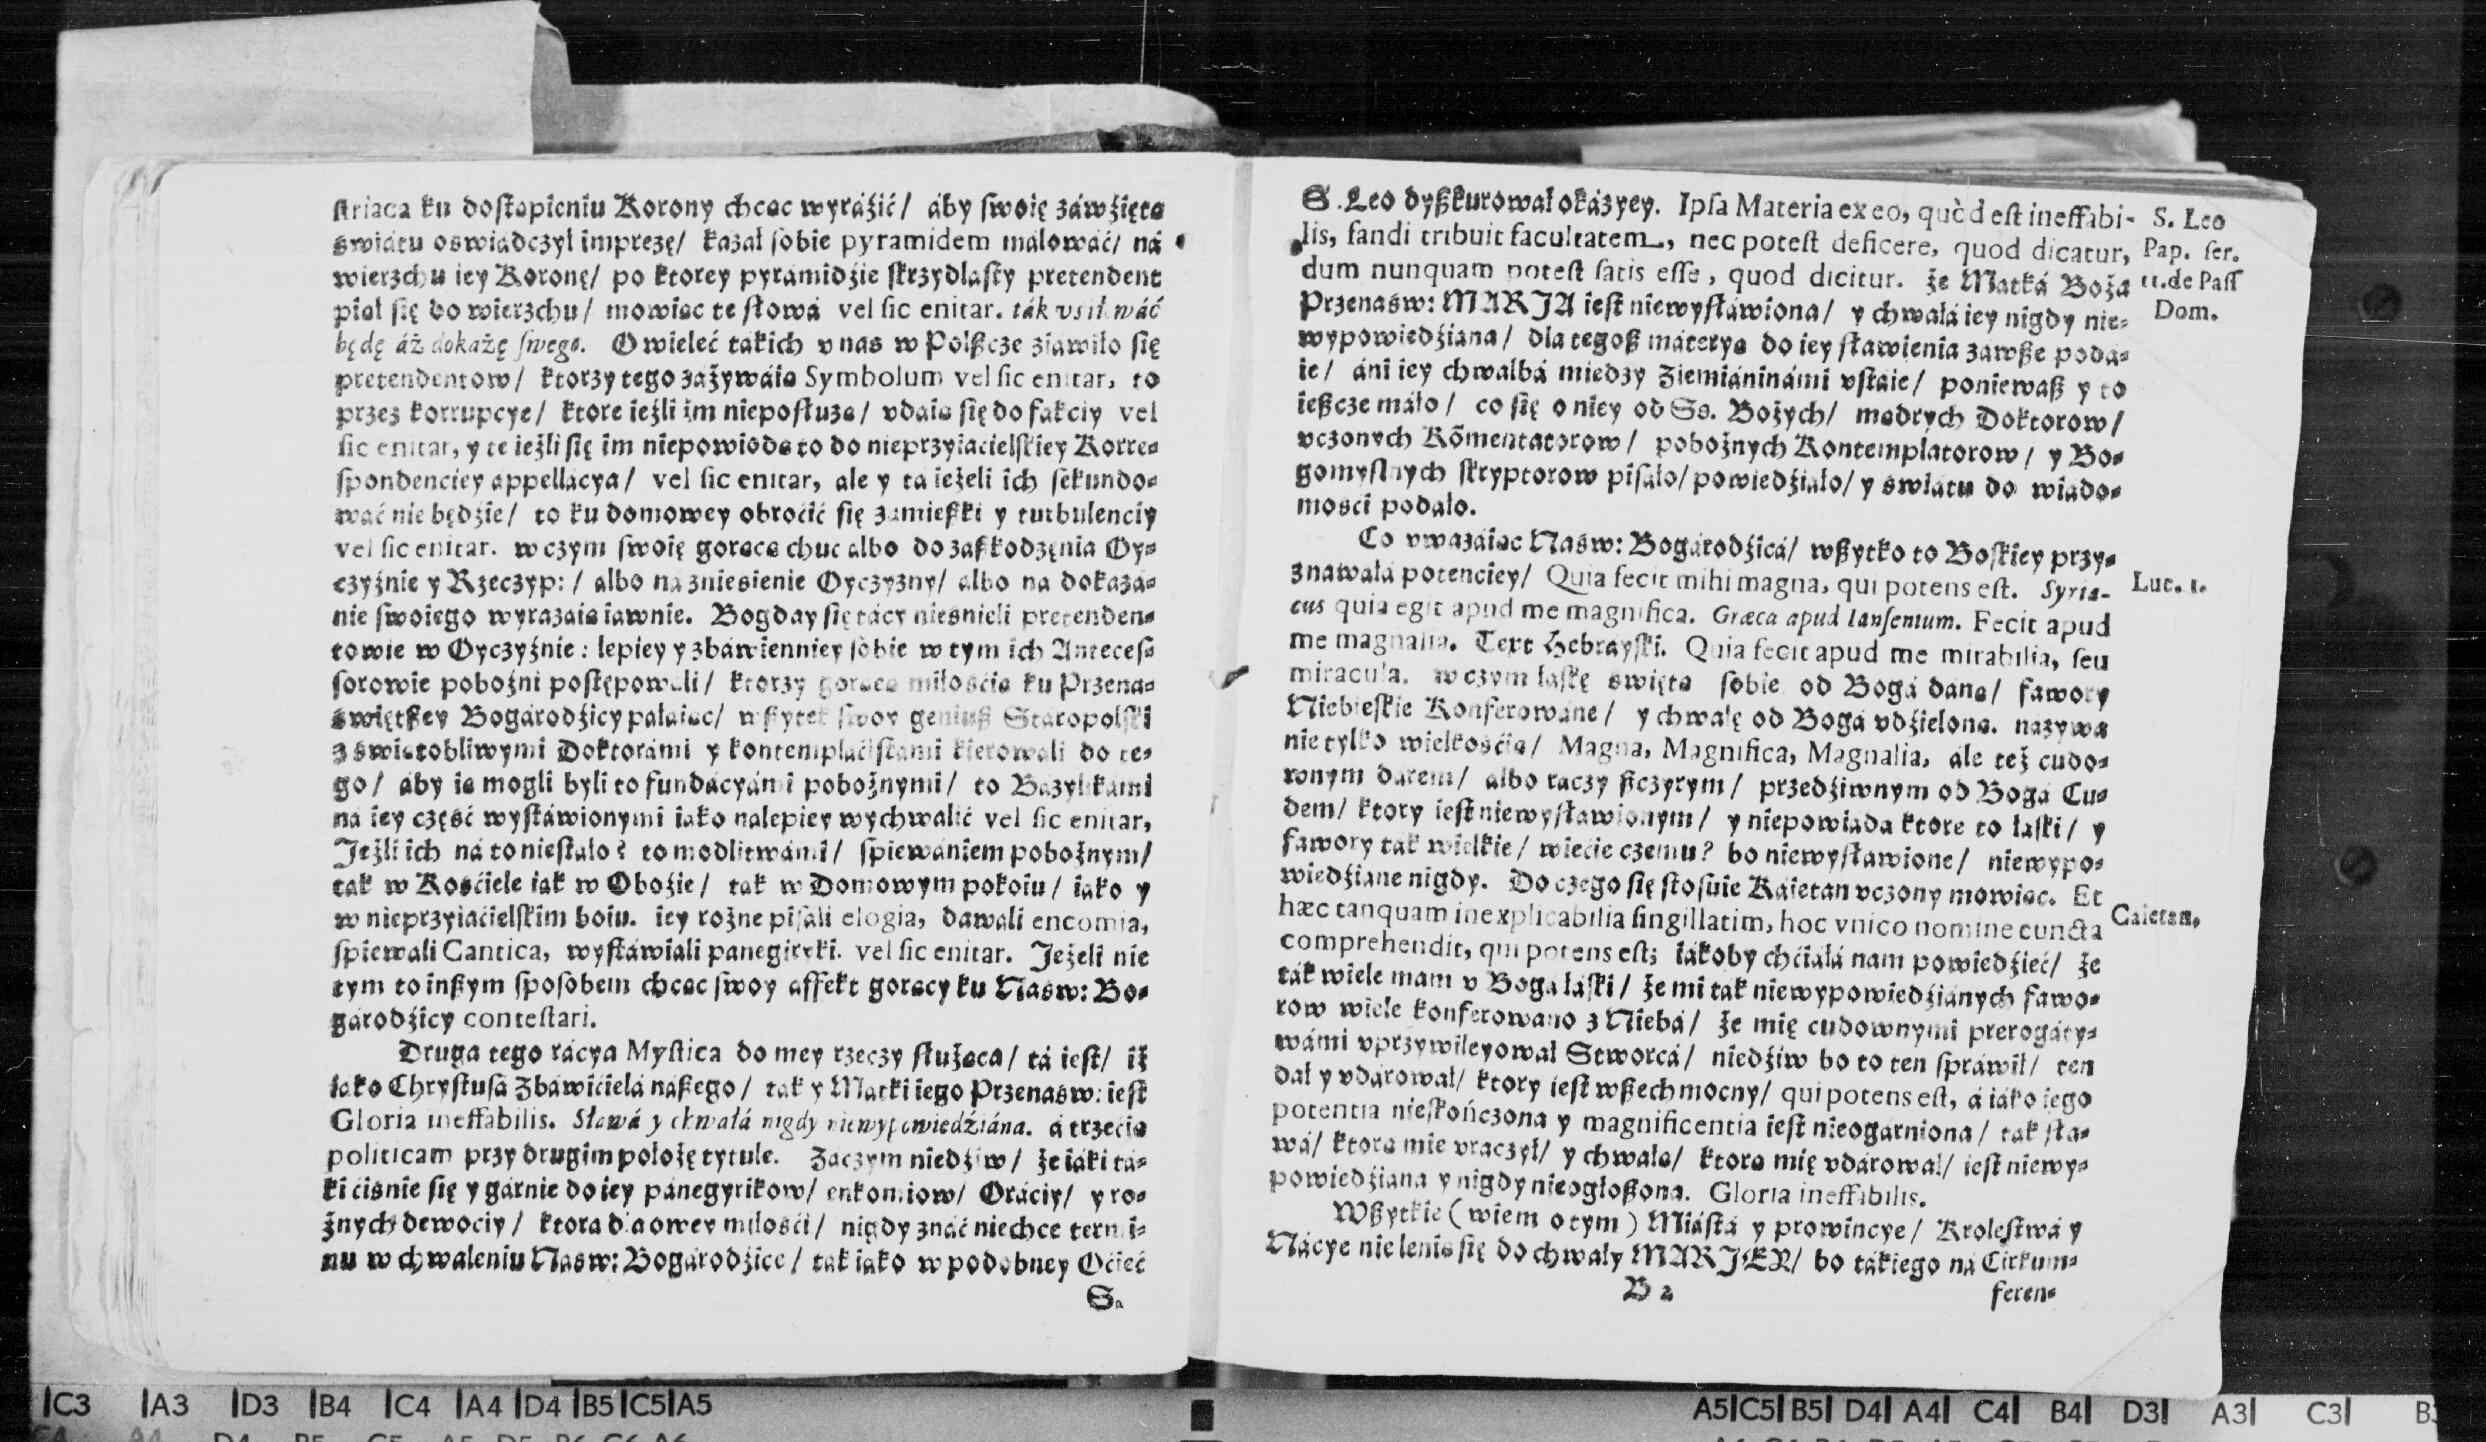 striaca ku dostąpieniu Korony chcąc wyráźić/ áby swoię záwźiętą
swiátu oswiadczył imprezę/ kazał sobie pyramidem málowáć/ ná
wierzchu iey Koronę/ po ktorey pyrámidźie skrzydlásty pretendent
piął się do wierzchu/ mowiąc te słowá vel sic enitar. ták vsiłowáć
będę áż dokażę swego. O wieleć takich v nas w Polszcze ziawiło się
pretendentow/ ktorzy tego zażywáią Symbolum vel sic enitar, to
przez korrupcye/ ktore ieźli im nieposłużą/ vdaią się do fakciy vel
sic enitar, y te ieźli się im niepowiodą to do nieprzyiacielskiey Korre-
spondenciey appellácya/ vel sic enitar, ale y ta ieżeli ich sekundo-
wáć nie będźie/ to ku domowey obroćić się zamieszki y turbulenciy
vel sic enitar. w czym swoię gorącą chuć albo do zaszkodzęnia Oy-
czyźnie y Rzeczyp:/ albo na zniesienie Oyczyzny/ albo na dokaza-
nie swoiego wyrazaią iawnie. Bogday się tácy niesnieli pretenden-
towie w Oyczyźnie: lepiey y zbáwienniey sobie w tym ich Antecess-
sorowie poboźni postępowali/ ktorzy gorącą miłosćią ku Przena-
swiętszey Bogárodźicy pałaiąc/ wszytek swoy geniusz Stáropolski
z swiątobliwymi Doktorámi y kontemplácistámi kierowali do te-
go/ áby ią mogli byli to fundácyámi pobożnymi/ to Bázylikámi
ná iey część wystáwionymi iáko nalepiey wychwalić vel sic enitar,
Jeźli ich ná to niestało? to modlitwámi/ spiewániem pobożnym/
tak w Kosćiele iak w Oboźie/ tak w Domowym pokoiu/ iáko y
w nieprzyiaćielskim boiu. iey rożne pisáli elogia, dawali encomia,
spiewáli Cantica, wystáwiáli panegiryki. vel sic enitar. Jeżeli nie
tym to inszym sposobem chcąc swoy affekt gorący ku Nasw: Bo-
gárodźicy contestari.
Druga tego rácya Mystica do mey rzeczy służąca/ tá iest/ iż
iáko Chrystusá Zbáwićielá nászego/ ták y Mátki iego Przenasw: iest
Gloria ineffabilis. Sławá y chwałá nigdy niewypowiedźiána. á trzećią
politicam przy drugim położę tytule. Záczym niedźiw/ że iáki tá-
ki ćisnie się y gárnie do iey pánegyrikow/ enkomiow/ Oráciy/ y ro-
żnych dewociy/ ktora dla owey miłosći/ nigdy znáć niechce termi-
nu w chwaleniu Nasw: Bogárodźice/ ták iáko w podobney Oćieć
S.
S. Leo dyszkurował okázyey. Ipsa Materia ex eo, quòd est ineffabi-
lis, fandi tribuit facultatem, nec potest deficere, quod dicatur,
dum nunquam potest satis esse, quod dicitur. że Mátká Boża
Przenasw: MARJA iest niewysławiona/ y chwałá iey nigdy nie-
wypowiedźiana/ dla tegosz máteryą do iey sławienia záwsze podá-
ie/ áni iey chwalbá miedzy Ziemiáninámi vstáie/ poniewasz y to
ieszcze máło/ co się o niey od SS. Bożych/ mądrych Doktorow/
vczonych Kõmentatorow/ pobożnych Kontemplatorow/ y Bo-
gomyslnych skryptorow pisáło/ powiedźiało/ y swiátu do wiádo-
mosci podało.
S. Leo
Pap. ser.
11. de Pass
Dom.
Co vwazáiąc Nasw: Bogárodźicá/ wszytko to Boskiey przy-
znawała potenciey/ Quia fecit mihi magna, qui potens est. Syria-
cus quia egit apud me magnifica. Græca apud Iansenium. Fecit apud
me magnalia. Text Hebrayski. Quia fecit apud me mirabilia, seu
miracula. w czym łáskę swiętą sobie od Bogá dáną/ fáwory
Niebieskie Konferowáne/ y chwałę od Bogá vdźieloną. názywa
nie tylko wielkosćią/ Magna, Magnifica, Magnalia, ale też cudo-
wnym dárem/ albo ráczy szczyrym/ przedźiwnym od Bogá Cu-
dem/ ktory iest niewysławionym/ y niepowiáda ktore to łáski/ y
fáwory ták wielkie/ wiećie czemu? bo niewysławione/ niewypo-
wiedźiane nigdy. Do czego się stosuie Káietan vczony mowiąc. Et
hæc tanquam inexplicabilia singillatim, hoc vnico nomine cuncta
comprehendit, qui potens est; iákoby chćiáłá nam powiedźieć/ że
ták wiele mam v Bogá łáski/ że mi ták niewypowiedźiánych fawo-
row wiele konferowano z Niebá/ że mię cudownymi prerogáty-
wámi vprzywileyował Stworcá/ niedźiw bo to ten spráwił/ ten
dał y vdárował/ ktory iest wszechmocny/ qui potens est, á iáko iego
potentia nieskończona y magnificentia iest nieogarniona/ ták sła-
wá/ ktorą mie vraczył/ y chwałą/ ktorą mię vdárował/ iest niewy-
powiedźiana y nigdy nieogłoszona. Gloria ineffabilis.
Luc. 1.
Caietan.
Wszytkie (wiem o tym) Miástá y prowincye/ Krolestwá y
Nácye nie lenią się do chwały MARJEY/ bo tákiego ná Cirkum-
B 2
feren-
C3 A3 D3 B4 C4 A4 D4 B5 C5 A5
A5 C5 B5 D4 A4 C4 B4 D3 A3 C3